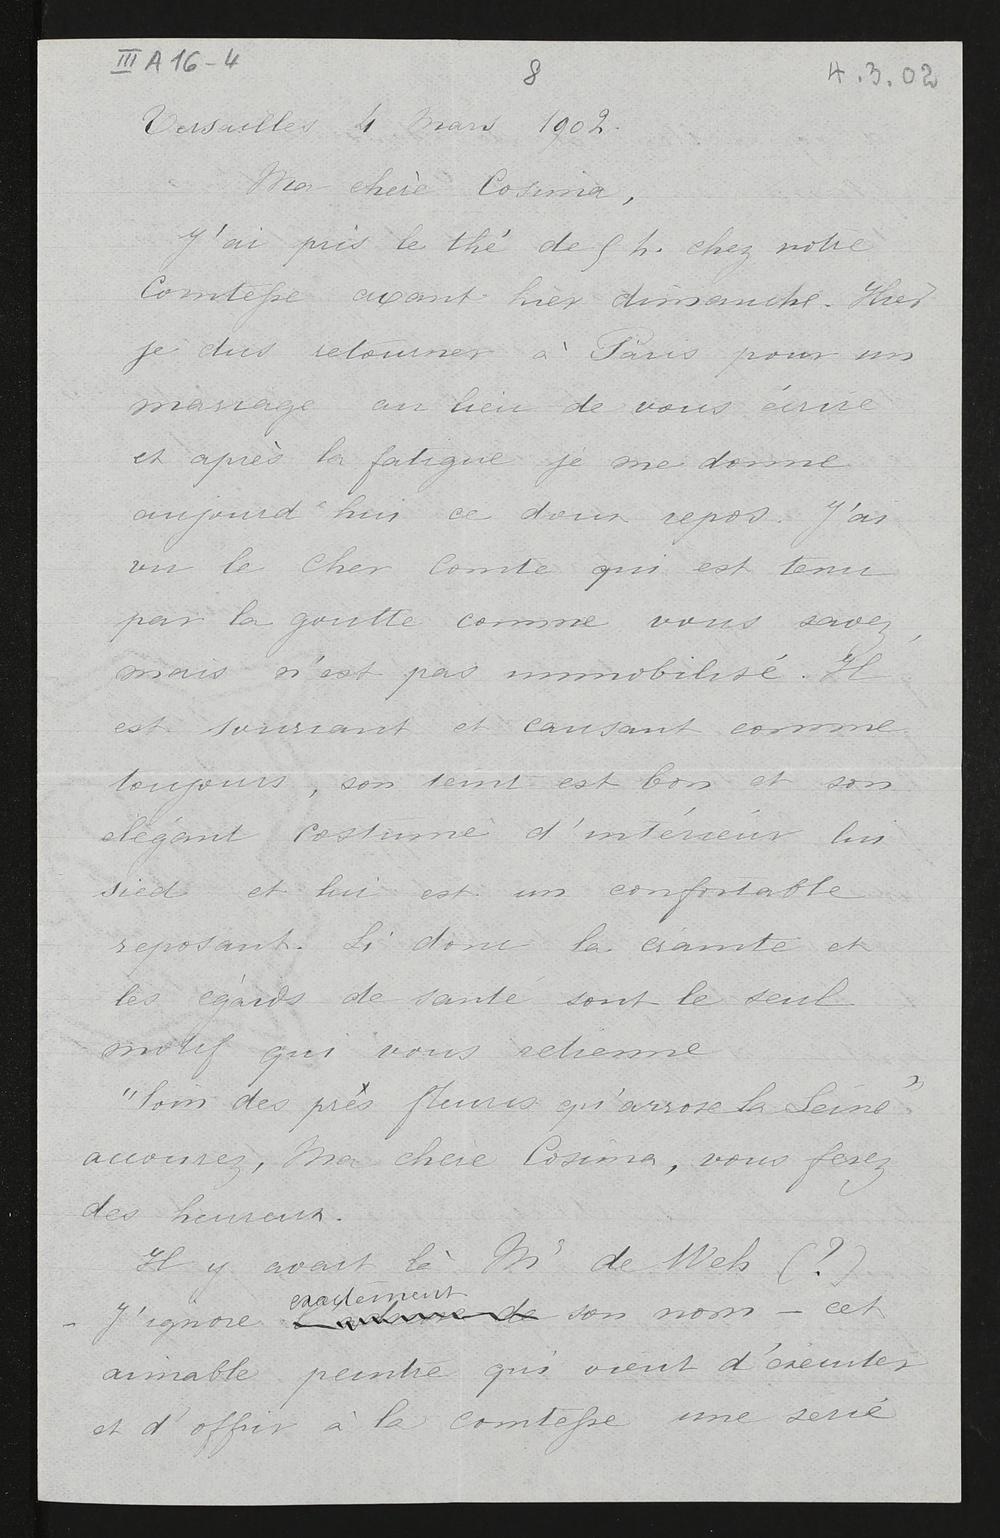 III A 16-4
8
4.3.02
Versailles 4 Mars 1902.
Ma chère Cosima,
J'ai pris le thé de 5 h. chez notre
Comtesse avant hier dimanche. Hier
je dus retourner à Paris pour un
mariage au lieu de vous écrire
et après la fatigue je me donne
aujourd'hui ce doux repos. J'ai
vu le cher Comte qui est tenu
par la goutte comme vous savez,
mais n'est pas immobilisé. Il
est souriant et causant comme
toujours, son teint est bon et son
élégant costume d'intérieur lui
sied et lui est un confortable
reposant. Si donc la crainte et
les égards de santé sont le seul
motif qui vous retienne
"loin des prés x fleuris qu'arrose la Seine"
accourez, Ma chère Cosima, vous ferez
des heureux.
Il y avait là Mr de Weh (?)
- J'ignore exactement son nom - cet
aimable peintre qui vient d'exécuter
et d'offrir à la comtesse une serie